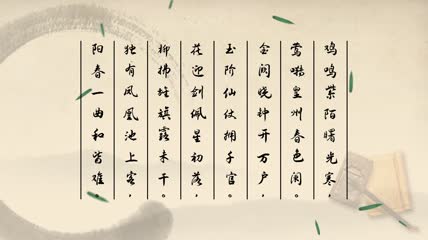 鸡鸣紫陌曙光寒，
莺啭皇州春色阑。
金阙晓钟开万户，
玉阶仙仗拥千官。
花迎剑佩星初落，
柳拂旌旗露未干。
独有凤凰池上客，
阳春一曲和皆难。